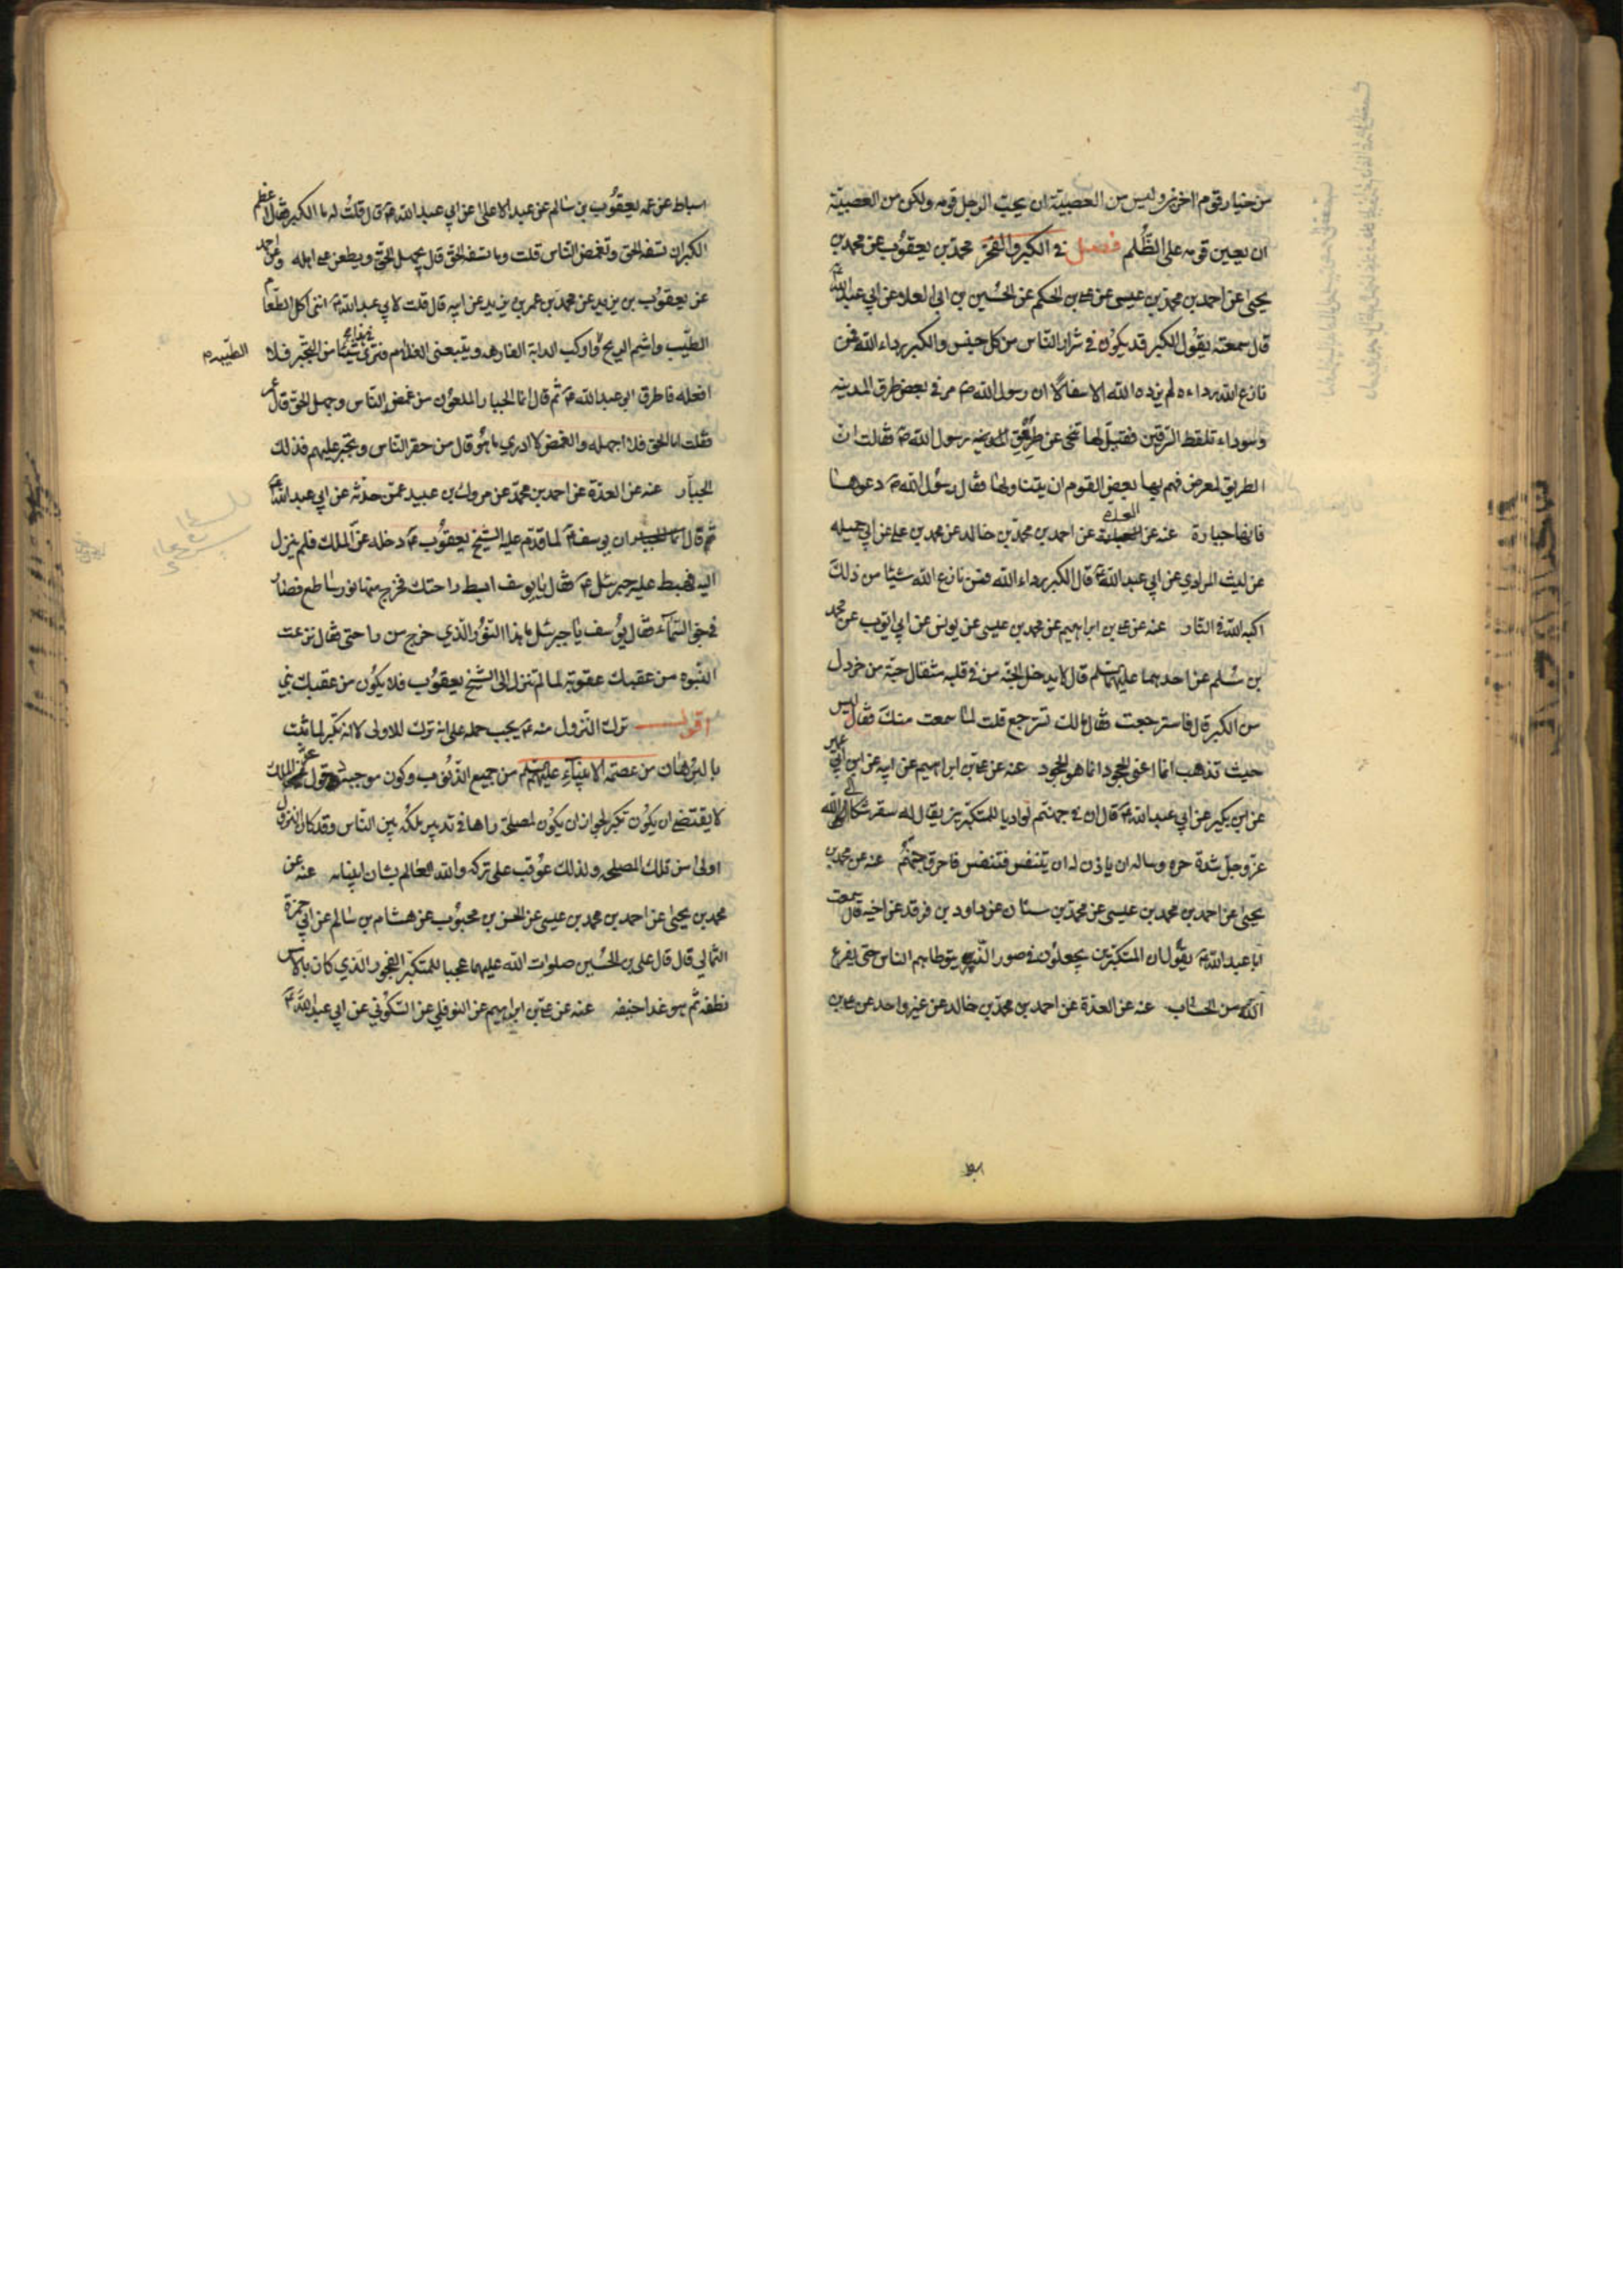 من خيار قوم اخرين وليس من العصبية ان يحب الرجل قومه ولكن من العصبية
ان يعين قومه على الظلم فصل في الكبر والفخر محمد بن يعقوب عن محمد بن
يحيى عن احمد بن محمد بن عيسى عن علي بن الحكم عن الحسين بن ابي العلا عن ابي عبد الله ع
قال سمعته يقول الكبر قد يكون في شرار الناس من كل جنس والكبر رداء الله فمن
نازع الله رداءه لم يزده الله الا سفالا ان رسول الله ص مر في بعض طرق المدينه
وسوداء تلقط السرقين فقيل لها تنحى عن طريق رسول الله ص فقالت ان
الطريق لمعرض فهم بها بعض القوم ان يتناولها فقال رسول الله ص دعوها
فانها جبارة عنه عن العدة عن احمد بن محمد بن خالد عن محمد بن علي عن ابي جميله
عن ليث المرادي عن ابي عبد الله ع قال الكبر رداء الله فمن نازع الله شيئا من ذلك
اكبه الله في النار عنه عن علي بن ابراهيم عن محمد بن عيسى عن يونس عن ابي ايوب عن محمد
بن مسلم عن احدهما عليهما السلم قال لا يدخل الجنة من في قلبه مثقال حبة من خردل
من الكبر قال فاسترجعت فقال مالك تسترجع قلت لما سمعت منك فقال ليس
حيث تذهب انما اعني الجحود انما هو الجحود عنه عن علي بن ابراهيم عن ابيه عن ابن ابي عمير
عن ابن بكير عن ابي عبد الله ع قال ان في جهنم لواديا للمتكبرين يقال له سقر شكا الى الله
عز وجل شدة حره وساله ان ياذن له ان يتنفس فتنفس فاحرق جهنم عنه عن محمد بن
يحيى عن احمد بن محمد بن عيسى عن محمد بن سنان عن داود بن فرقد عن اخيه قال سمعت
ابا عبد الله ع يقول ان المتكبرين يجعلون في صور الذر يتوطاهم الناس حتى يفرغ
الله من الحساب عنه عن العدة عن احمد بن محمد بن خالد عن غير واحد عن علي بن
اسباط عن عمه يعقوب بن سالم عن عبد الاعلى عن ابي عبد الله ع قال قلت له ما الكبر فقال اعظم
الكبر ان تسفه الحق وتغمض الناس قلت وما تسفه الحق قال يجهل الحق ويطعن على اهله وعن احمد
عن يعقوب بن يزيد عن محمد بن عمر بن يزيد عن ابيه قال قلت لابي عبد الله ع انني اكل الطعام
الطيب واشم الريح الطيبة واركب الدابة الفارهه ويتبعني الغلام فترى في هذا شيئا من التجبر فلا
افعله فاطرق ابو عبد الله ع ثم قال انما الجبار الملعون من غمض الناس وجهل الحق قال عمر
فقلت اما الحق فلا اجهله والغمض لا ادري ما هو قال من حقر الناس وتجبر عليهم فذلك
الجبار عنه عن العدة عن احمد بن محمد عن مروك بن عبيد عمن حدثه عن ابي عبد الله ع
قال ان يوسف ع لما قدم عليه الشيخ يعقوب ع دخله عز الملك فلم ينزل
اليه فهبط عليه جبرئيل ع فقال يا يوسف ابسط راحتك فخرج منها نور ساطع فصار
في جو السماء فقال يوسف يا جبرئيل ما هذا النور الذي خرج من راحتي فقال نزعت
النبوه من عقبك عقوبة لما لم تنزل الى الشيخ يعقوب فلا يكون من عقبك نبي
اقول ترك النزول منه ع يجب حمله على انه ترك للاولى لا انه تكبر لما ثبت
بالبرهان من عصمة الانبياء عليهم السلم من جميع الذنوب وكون موجبه دخول عز الملك
لا يقتضي ان يكون تكبرا لجواز ان يكون لمصلحة راها في تدبير ملكه بين الناس وقد كان النزول
اولى من تلك المصلحه ولذلك عوقب على تركه والله العالم بشان انبيائه عنه عن
محمد بن يحيى عن احمد بن محمد بن عيسى عن الحسن بن محبوب عن هشام بن سالم عن ابي حمزة
الثمالي قال قال علي بن الحسين صلوات الله عليهما عجبا للمتكبر الفخور الذي كان بالامس
نطفه ثم هو غدا جيفه عنه عن علي بن ابراهيم عن النوفلي عن السكوني عن ابي عبد الله ع